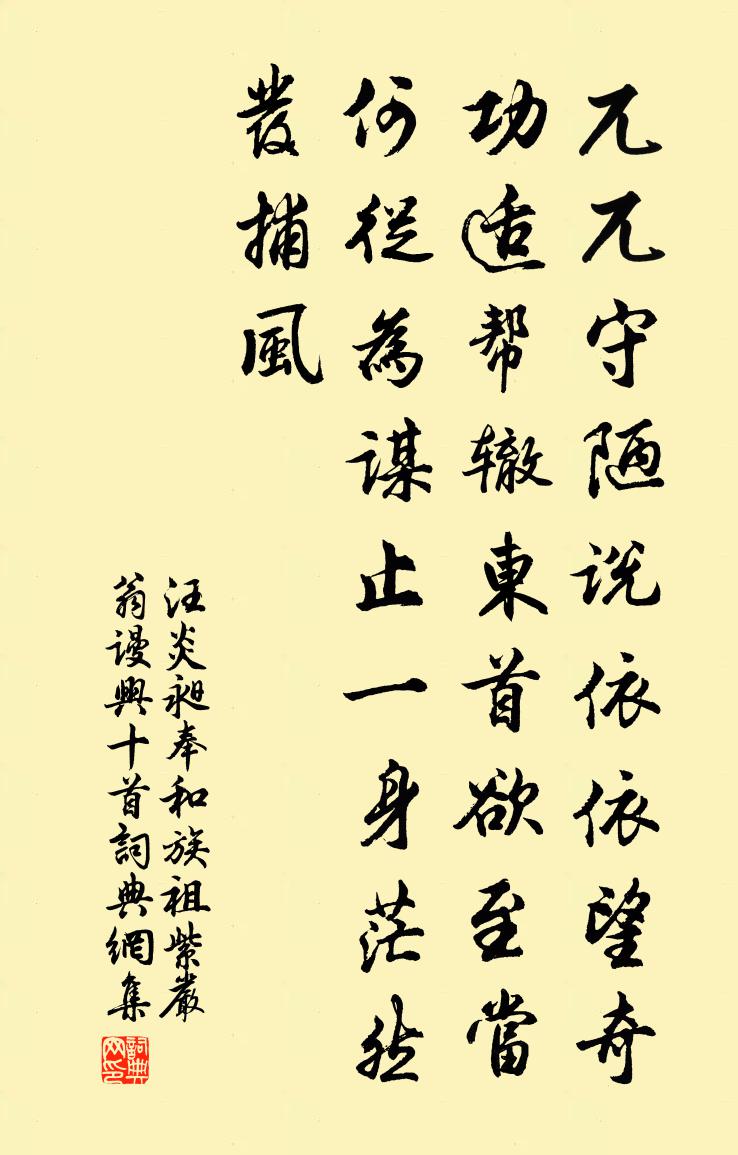 兀兀守陋说依依望奇
功适帮辙東首欲至當
何從為谋止一身茫然
發捕風
汪炎昶奉和族祖紫巖
翁谩興十首詞典網集
詞典网印